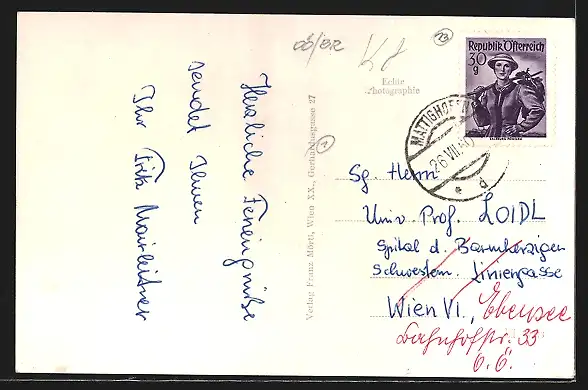 OÖ/BR
Kt
Herzliche Feriengrüße
sendet Ihnen
Ihr Fritz Mairleitner
Echte
Photographie
Verlag Franz Mörtl, Wien XX., Gerhardusgasse 27
Republik Österreich
30
g
MATTIGHOFEN
26.VII.50
d
Sg. Herrn
Univ. Prof. LOIDL
Spital d. Barmherzigen
Schwestern. Liniengasse
Wien VI., Ebensee
Bahnhofstr. 33
O.Ö.